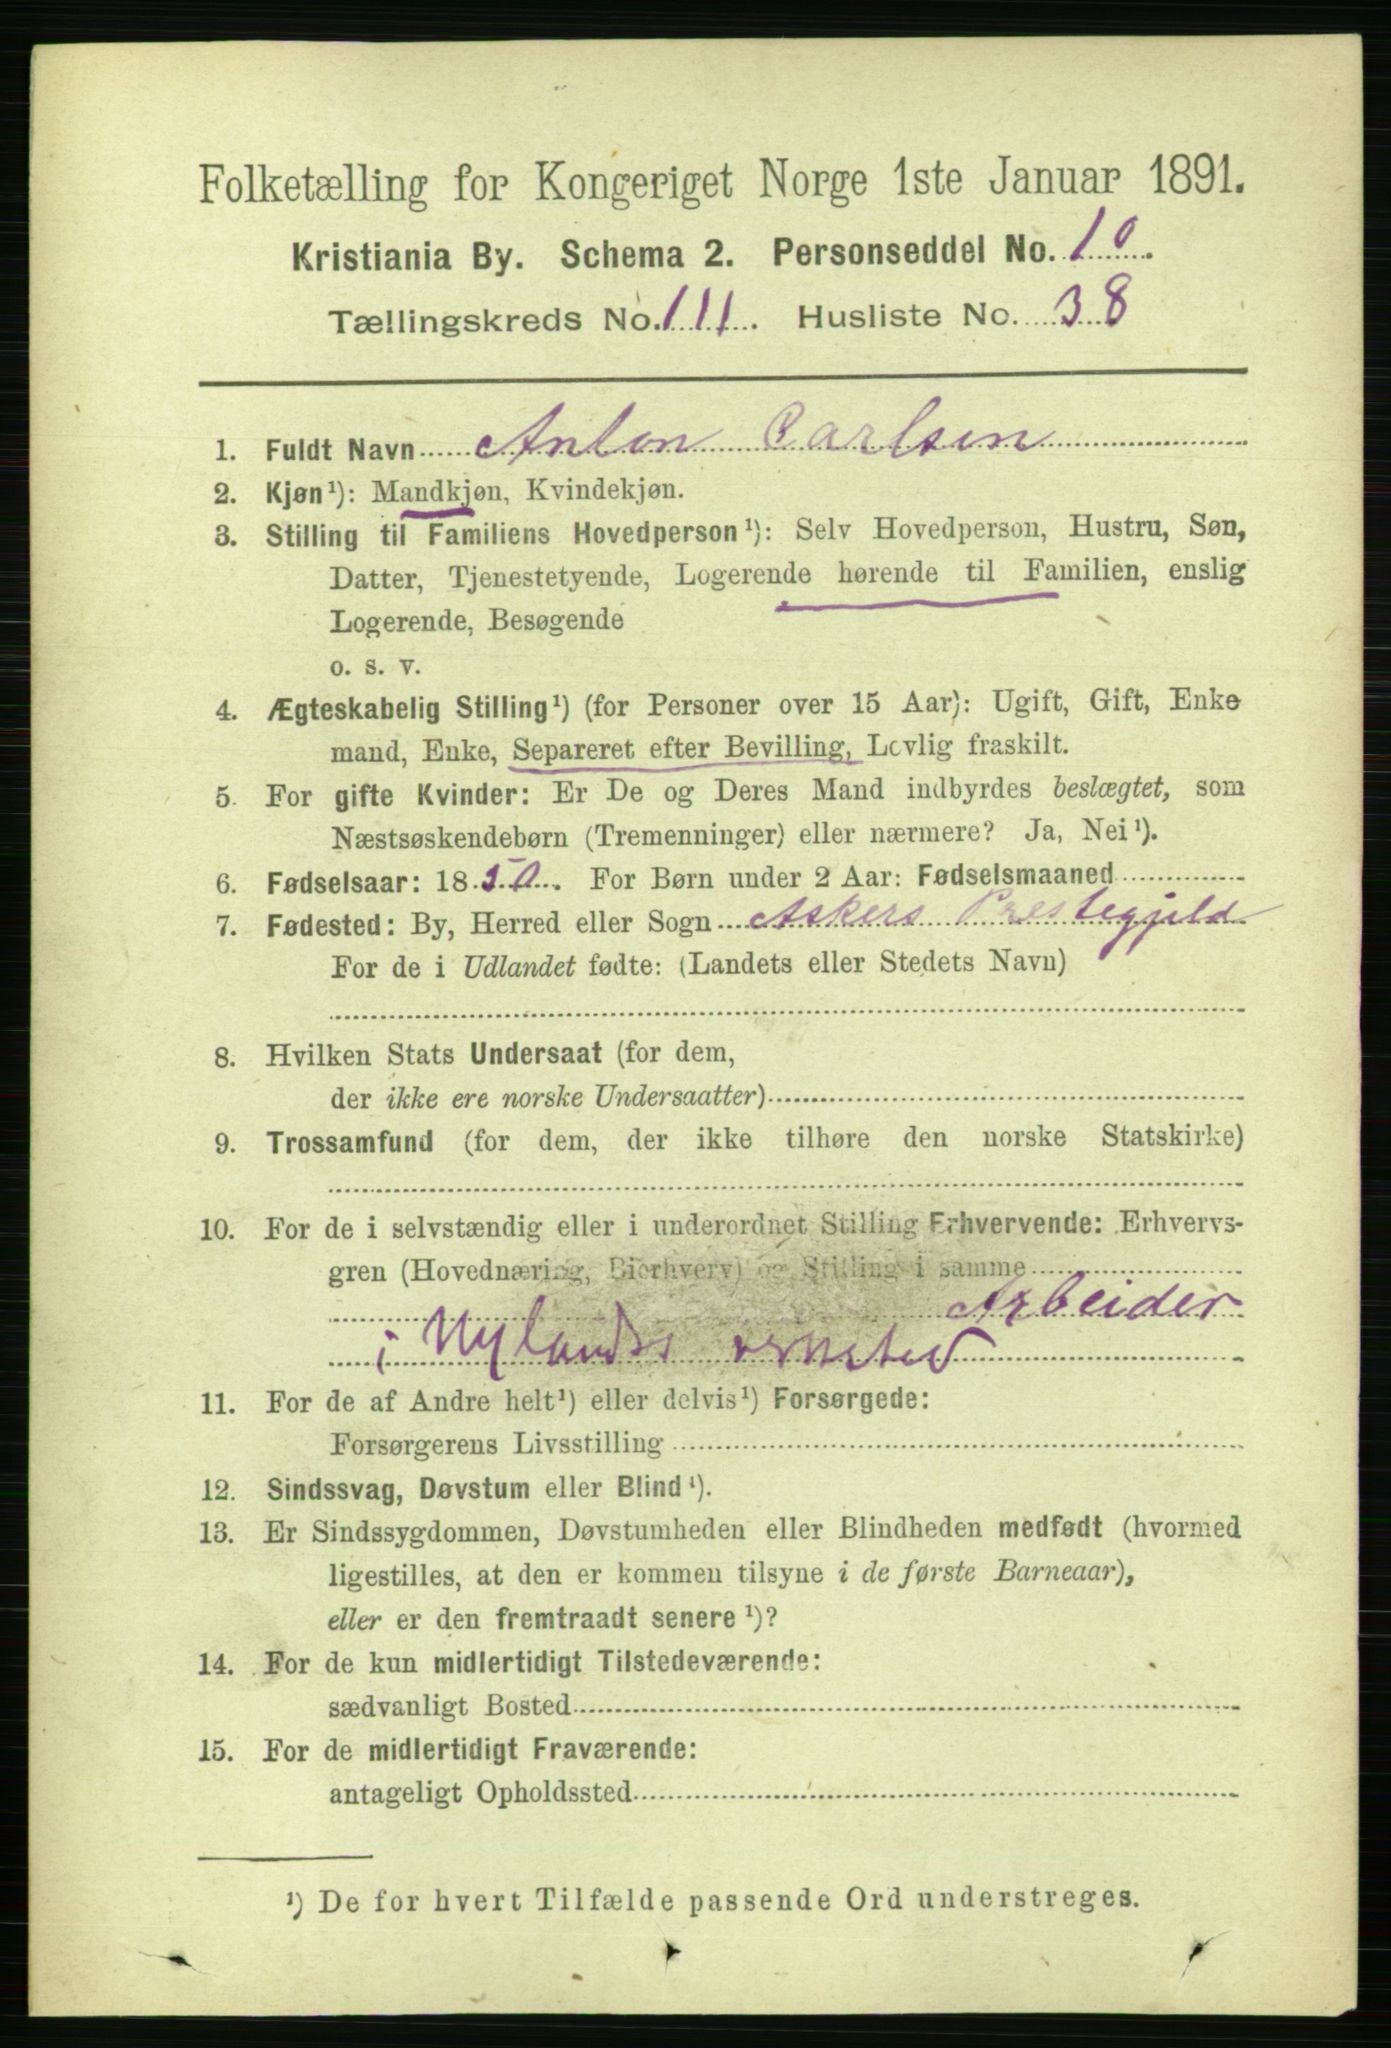 Folketælling for Kongeriget Norge 1ste Januar 1891.
Kristiania By. Schema 2. Personseddel No. 10.
Tællingskreds No. 111. Husliste No. 38
1. Fuldt Navn Anton Carlsen
2. Kjøn¹): Mandkjøn, Kvindekjøn.
3. Stilling til Familiens Hovedperson¹): Selv Hovedperson, Hustru, Søn,
Datter, Tjenestetyende, Logerende hørende til Familien, enslig
Logerende, Besøgende
o. s. v.
4. Ægteskabelig Stilling¹) (for Personer over 15 Aar): Ugift, Gift, Enke
mand, Enke, Separeret efter Bevilling, Lovlig fraskilt.
5. For gifte Kvinder: Er De og Deres Mand indbyrdes beslægtet, som
Næstsøskendebørn (Tremenninger) eller nærmere? Ja, Nei¹).
6. Fødselsaar: 1850. For Børn under 2 Aar: Fødselsmaaned
7. Fødested: By, Herred eller Sogn Askers Prestegjeld
For de i Udlandet fødte: (Landets eller Stedets Navn)
8. Hvilken Stats Undersaat (for dem,
der ikke ere norske Undersaatter)
9. Trossamfund (for dem, der ikke tilhøre den norske Statskirke)
10. For de i selvstændig eller i underordnet Stilling Erhvervende: Erhvervs-
gren (Hovednæring, Bierhverv) og Stilling i samme
Arbeider
i Nylands
11. For de af Andre helt¹) eller delvis¹) Forsørgede:
Forsørgerens Livsstilling
12. Sindssvag, Døvstum eller Blind¹).
13. Er Sindssygdommen, Døvstumheden eller Blindheden medfødt (hvormed
ligestilles, at den er kommen tilsyne i de første Barneaar),
eller er den fremtraadt senere¹)?
14. For de kun midlertidigt Tilstedeværende:
sædvanligt Bosted
15. For de midlertidigt Fraværende:
antageligt Opholdssted
¹) De for hvert Tilfælde passende Ord understreges.